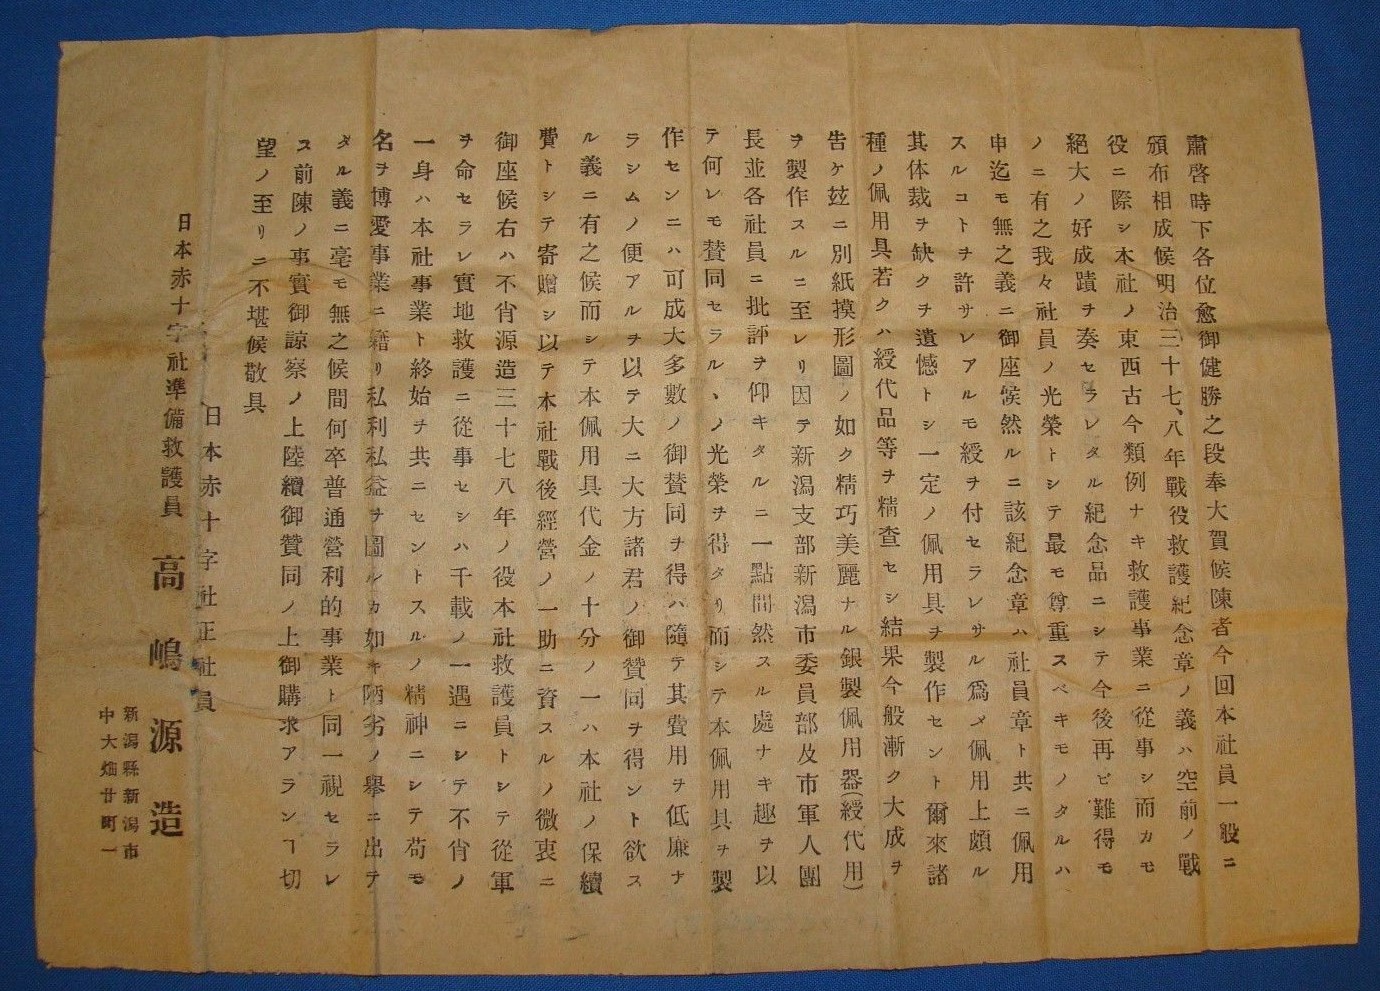 肅啓時下各位愈御健勝之段奉大賀候陳者今回本社員一般ニ
頒布相成候明治三十七、八年戰役救護紀念章ノ義ハ空前ノ戰
役ニ際シ本社ノ東西古今類例ナキ救護事業ニ從事シ而カモ
絕大ノ好成蹟ヲ奏セラレタル紀念品ニシテ今後再ビ難得モ
ノニ有之我々社員ノ光榮トシテ最モ尊重スベキモノタルハ
申迄モ無之義ニ御座候然ルニ該紀念章ハ社員章ト共ニ佩用
スルコトヲ許サレアルモ綬ヲ付セラレサル爲メ佩用上頗ル
其体裁ヲ缺クヲ遺憾トシ一定ノ佩用具ヲ製作セント爾來諸
種ノ佩用具若クハ綬代品等ヲ精査セシ結果今般漸ク大成ヲ
告ケ玆ニ別紙摸形圖ノ如ク精巧美麗ナル銀製佩用器(綬代用)
ヲ製作スルニ至レリ因テ新潟支部新潟市委員部及市軍人團
長並各社員ニ批評ヲ仰キタルニ一點間然スル處ナキ趣ヲ以
テ何レモ賛同セラルヽノ光榮ヲ得タリ而シテ本佩用具ヲ製
作センニハ可成大多數ノ御賛同ヲ得ハ隨テ其費用ヲ低廉ナ
ラシムノ便アルヲ以テ大ニ大方諸君ノ御賛同ヲ得ント欲ス
ル義ニ有之候而シテ本佩用具代金ノ十分ノ一ハ本社ノ保續
費トシテ寄贈シ以テ本社戰後經營ノ一助ニ資スルノ微衷ニ
御座候右ハ不肖源造三十七八年ノ役本社救護員トシテ從軍
ヲ命セラレ實地救護ニ從事セシハ千載ノ一遇ニシテ不肖ノ
一身ハ本社事業ト終始ヲ共ニセントスルノ精神ニシテ苟モ
名ヲ博愛事業ニ籍リ私利私益ヲ圖ルカ如キ陋劣ノ擧ニ出テ
タル義ニ毫モ無之候間何卒普通營利的事業ト同一視セラレ
ス前陳ノ事實御諒察ノ上陸續御賛同ノ上御購求アランヿ切
望ノ至リニ不堪候敬具
日本赤十字社正社員
日本赤十字社準備救護員 高嶋源造
新潟縣新潟市
中大畑廿町一